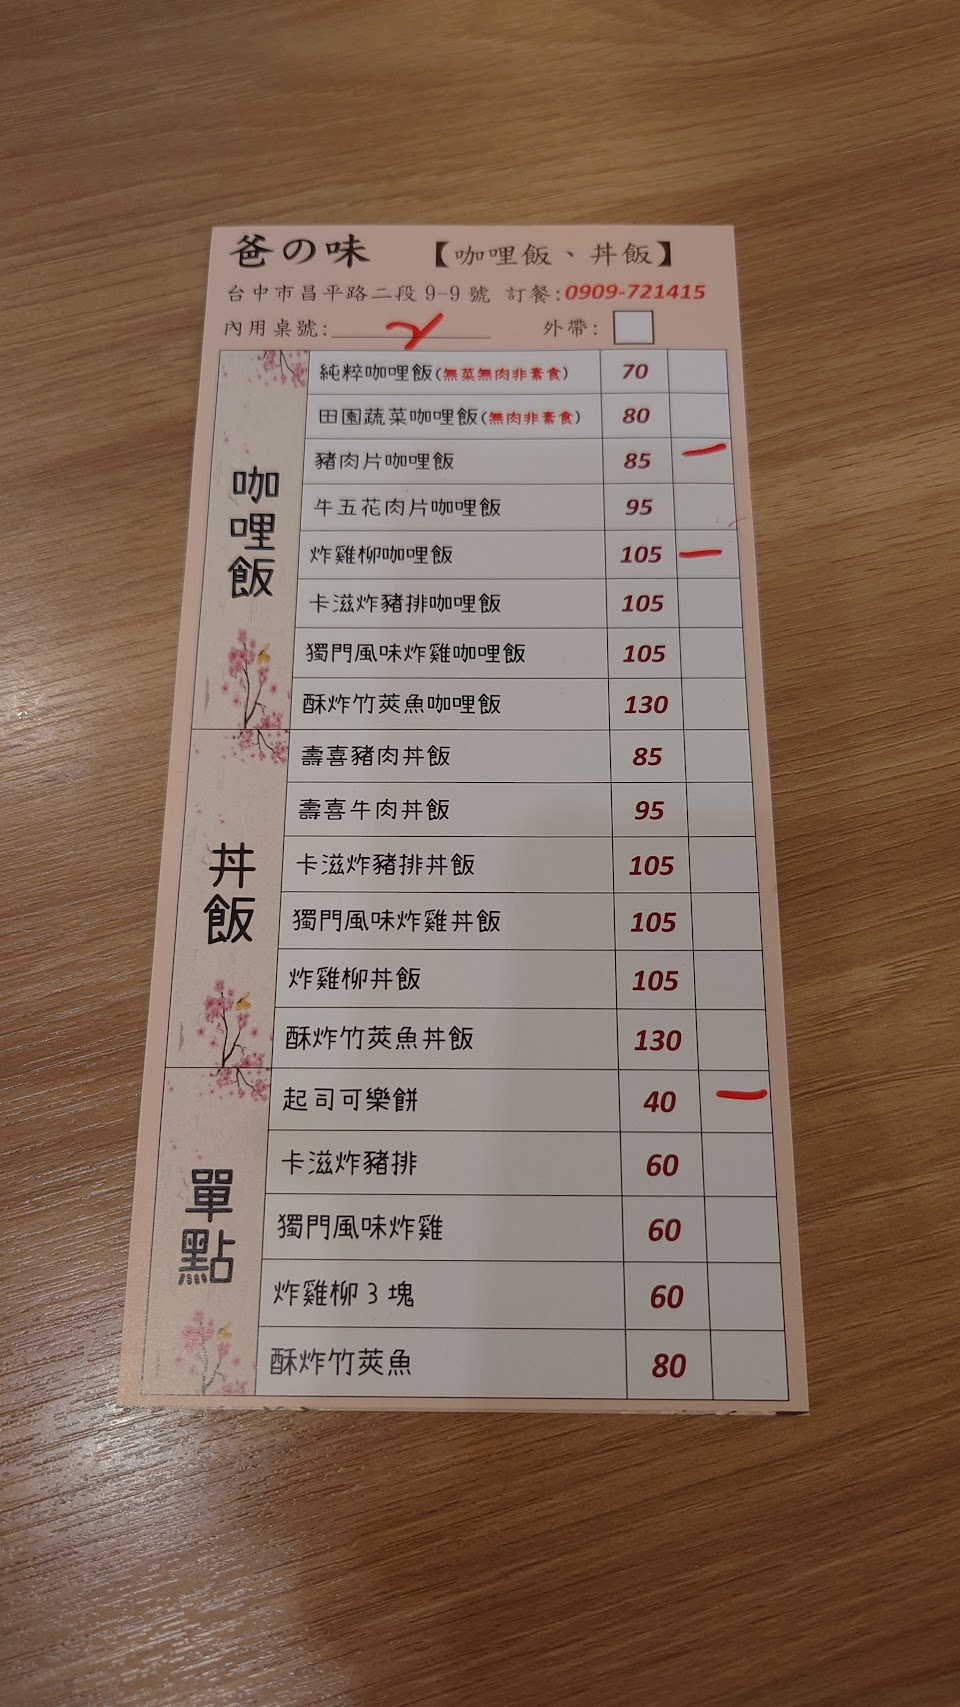 爸の味 【咖哩飯、丼飯】
台中市昌平路二段9-9號 訂餐:0909-721415
內用桌號: 外帶:
咖哩飯
純粹咖哩飯(無菜無肉非素食) 70
田園蔬菜咖哩飯(無肉非素食) 80
豬肉片咖哩飯 85 一
牛五花肉片咖哩飯 95
炸雞柳咖哩飯 105 一
卡滋炸豬排咖哩飯 105
獨門風味炸雞咖哩飯 105
酥炸竹莢魚咖哩飯 130
丼飯
壽喜豬肉丼飯 85
壽喜牛肉丼飯 95
卡滋炸豬排丼飯 105
獨門風味炸雞丼飯 105
炸雞柳丼飯 105
酥炸竹莢魚丼飯 130
單點
起司可樂餅 40 一
卡滋炸豬排 60
獨門風味炸雞 60
炸雞柳3塊 60
酥炸竹莢魚 80